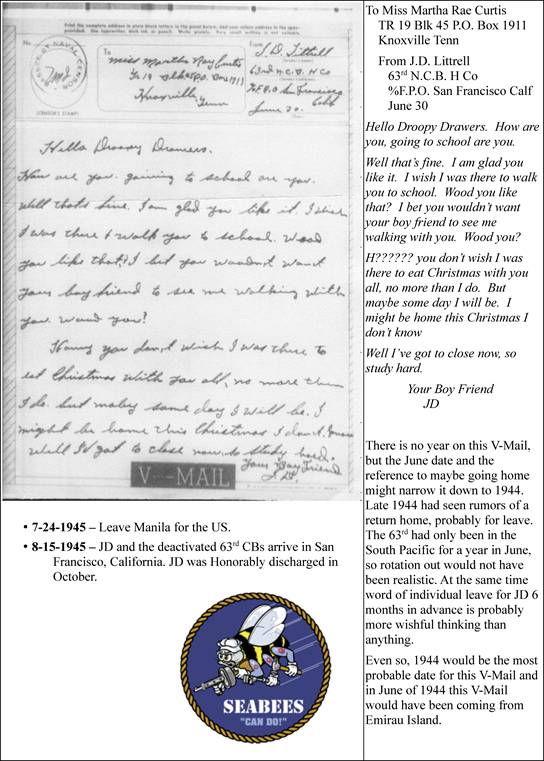 Print the complete address in plain block letters in the panel below, and your return address in the space provided. Use typewriter, dark ink, or pencil. Write plainly. Very small writing is not suitable.
No.
NAVAL CENSOR
(CENSOR'S STAMP)
To
Miss Martha Ray Curtis
Knoxville,
Tenn
From
J.D. Littrell
63rd N.C.B. H Co
F.P.O. San Francisco
Calif
June 30.
Hello Droopy Drawers.
How are you. goining to school are you.
Well thats fine. I am glad you like it. I wish
I was there to walk you to school. Wood
you like that? I bet you woodn't want
your boy friend to see me walking with
you. Wood you?
Honey you don't wish I was there to
eat Christmas with you all, no more then
I do. but maby some day I will be. I
might be home this Christmas I don't know
Well I've got to close now. so study hard.
Your Boy Friend
J.D.
V···—MAIL
• 7-24-1945 – Leave Manila for the US.
• 8-15-1945 – JD and the deactivated 63rd CBs arrive in San
Francisco, California. JD was Honorably discharged in
October.
SEABEES
"CAN DO!"
To Miss Martha Rae Curtis
TR 19 Blk 45 P.O. Box 1911
Knoxville Tenn
From J.D. Littrell
63rd N.C.B. H Co
%F.P.O. San Francisco Calf
June 30
Hello Droopy Drawers. How are
you, going to school are you.
Well that's fine. I am glad you
like it. I wish I was there to walk
you to school. Wood you like
that? I bet you wouldn't want
your boy friend to see me
walking with you. Wood you?
H?????? you don't wish I was
there to eat Christmas with you
all, no more than I do. But
maybe some day I will be. I
might be home this Christmas I
don't know
Well I've got to close now, so
study hard.
Your Boy Friend
JD
There is no year on this V-Mail,
but the June date and the
reference to maybe going home
might narrow it down to 1944.
Late 1944 had seen rumors of a
return home, probably for leave.
The 63rd had only been in the
South Pacific for a year in June,
so rotation out would not have
been realistic. At the same time
word of individual leave for JD 6
months in advance is probably
more wishful thinking than
anything.
Even so, 1944 would be the most
probable date for this V-Mail and
in June of 1944 this V-Mail
would have been coming from
Emirau Island.